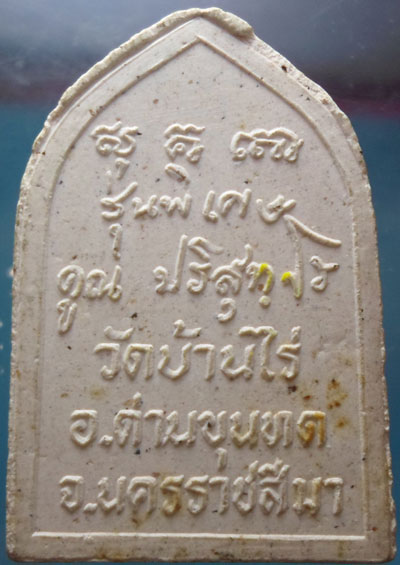 รุ่นพิเศษ
คูณ ปริสุทฺโธ
วัดบ้านไร่
อ.ด่านขุนทด
จ.นครราชสีมา